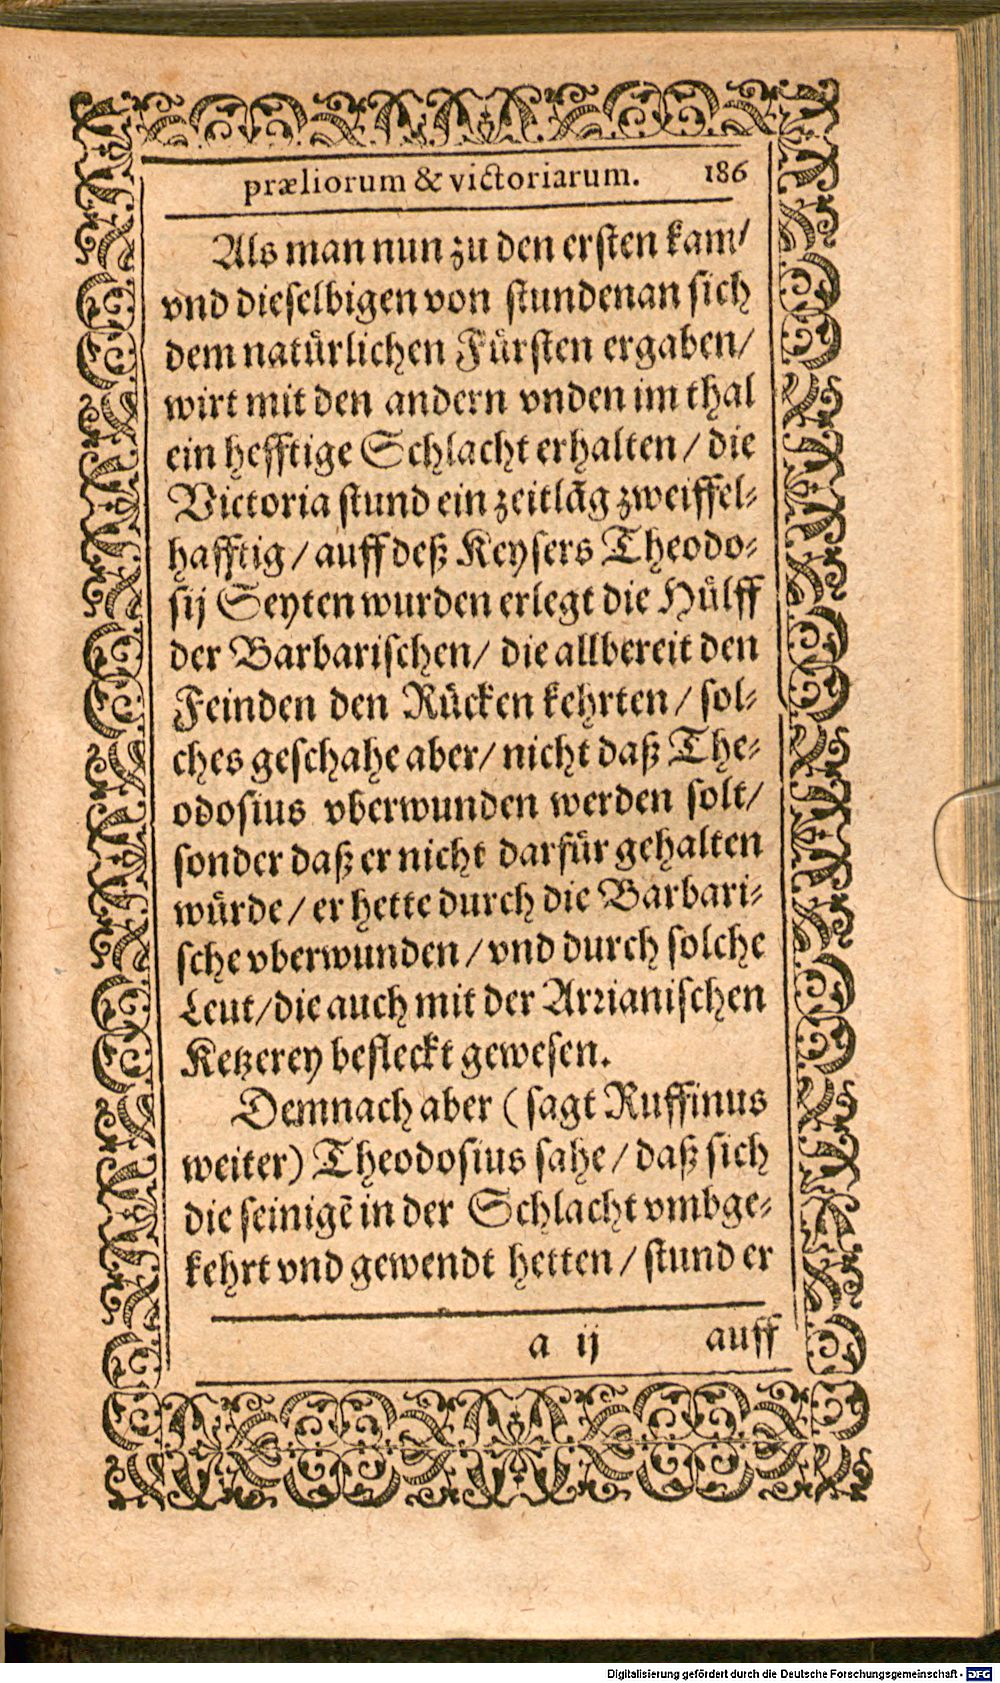 præliorum & victoriarum. 186
Als man nun zu den ersten kam/
vnd dieselbigen von stundenan sich
dem natürlichen Fürsten ergaben/
wirt mit den andern vnden im thal
ein hefftige Schlacht erhalten/ die
Victoria stund ein zeitlãg zweiffel-
hafftig/ auff deß Keysers Theodo-
sij Seyten wurden erlegt die Hülff
der Barbarischen/ die allbereit den
Feinden den Rücken kehrten/ sol-
ches geschahe aber/ nicht daß The-
odosius vberwunden werden solt/
sonder daß er nicht darfür gehalten
würde/ er hette durch die Barbari-
sche vberwunden/ vnd durch solche
Leut/ die auch mit der Arrianischen
Ketzerey befleckt gewesen.
Demnach aber (sagt Ruffinus
weiter) Theodosius sahe/ daß sich
die seinigẽ in der Schlacht vmbge-
kehrt vnd gewendt hetten/ stund er
a ij auff
Digitalisierung gefördert durch die Deutsche Forschungsgemeinschaft - DFG